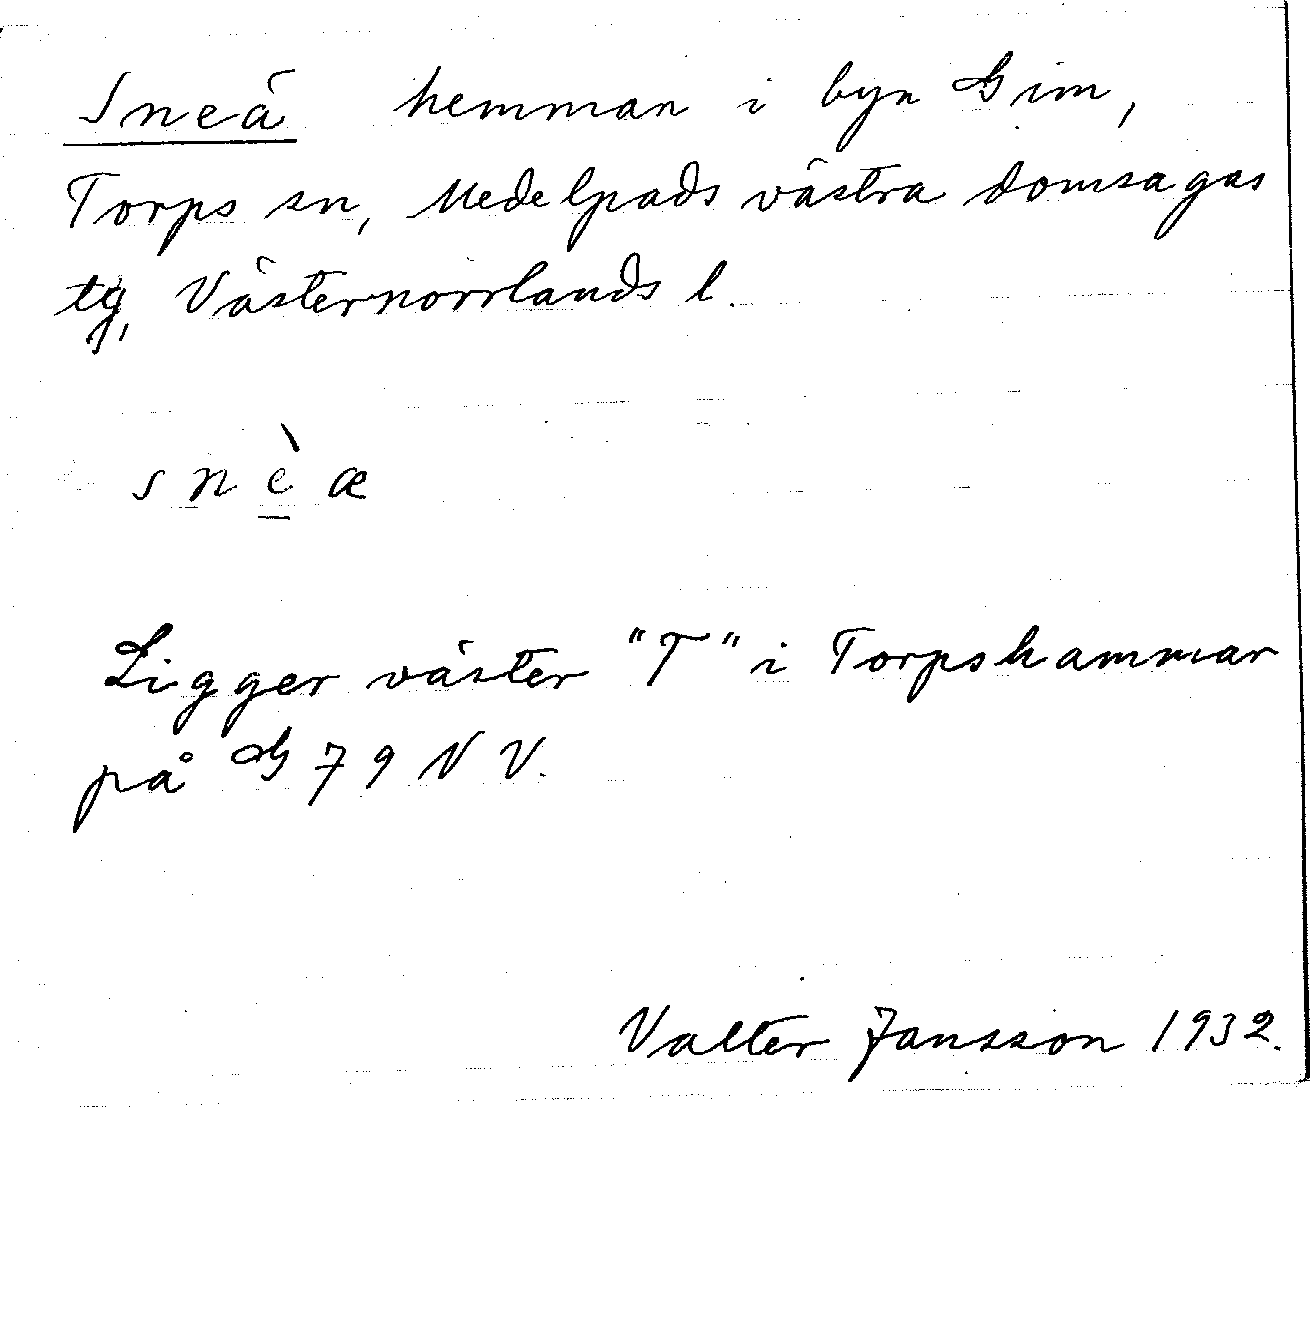 Sneä hemman i byn Gim,
Torps sn, Medelpads västra domsagas
tg, Västernorrlands l.
snèæ
Ligger väster "T" i Torpshammar
på G 79 NV.
Valter Jansson 1932.